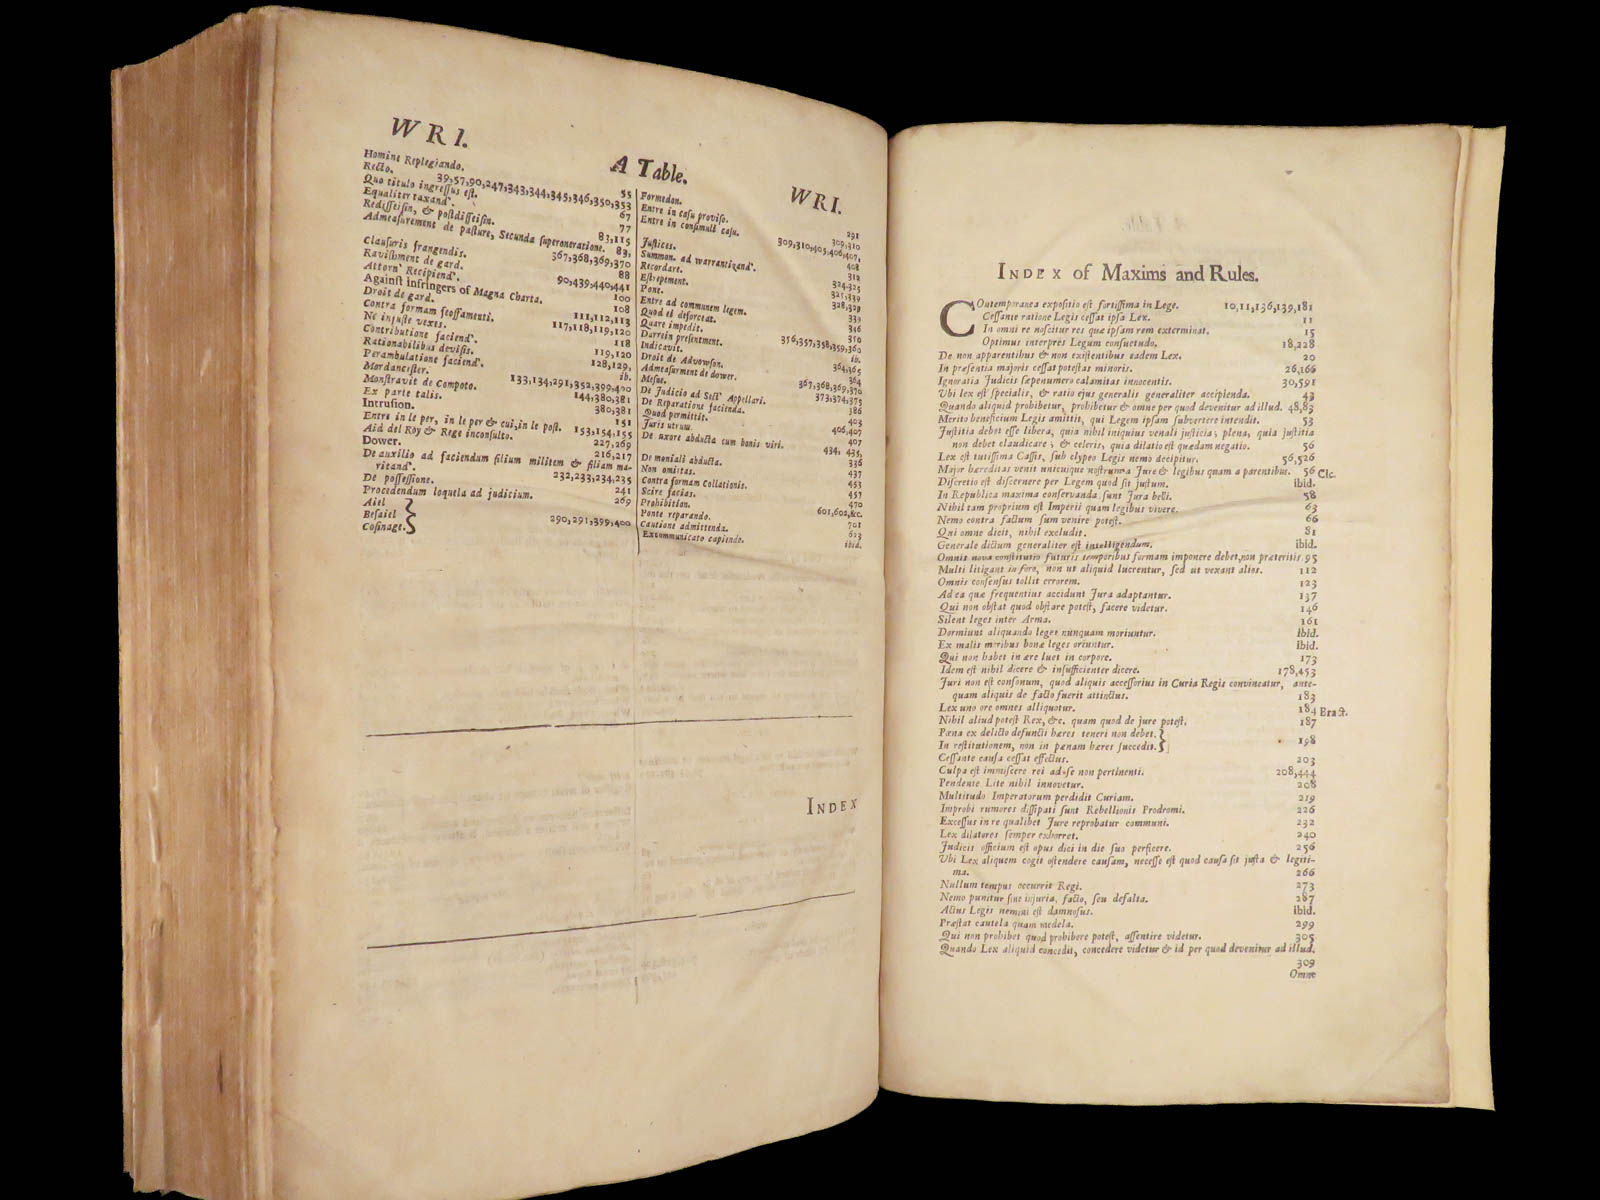 WRI.
A Table.
WRI.
Homine Replegiando. 55
Recto. 39,57,90,247,343,344,345,346,350,353
Quo titulo ingressus est. 67
Equaliter taxand'. 77
Redisseisin, & postdisseisin. 83,115
Admeasurement de pasture, Secunda superoneratione. 83,
367,368,369,370
Clausuris frangendis. 88
Ravishment de gard. 90,439,440,441
Attorn' Recipiend'. 100
Against infringers of Magna Charta. 108
Droit de gard. 111,112,113
Contra formam feoffamenti. 117,118,119,120
Ne injuste vexes. 118
Contributione faciend'. 119,120
Rationabilibus devisis. 128,129,
Perambulatione faciend'. ib.
Mordancester. 133,134,291,352,399,400
Monstravit de Compoto. 144,380,381
Ex parte talis. 380,381
Intrusion. 151
Entre in le per, in le per & cui, in le post. 153,154,155
Aid del Roy & Rege inconsulto. 227,269
Dower. 216,217
De auxilio ad faciendum filium militem & filiam ma-
ritand'. 232,233,234,235
De possessione. 241
Procedendum loquela ad judicium. 269
Aiel
Besaiel 290,291,399,400
Cosinage.
Formedon. 291
Entre in casu proviso. 309,310
Entre in consimuli casu. 309,310,405,406,407,
408
Justices. 312
Summon. ad warrantizand'. 324,325
Recordare. 325,339
Estrepement. 328,329
Pone. 330
Entre ad communem legem. 346
Quod ei deforceat. 350
Quare impedit. 356,357,358,359,360
Darrein presentment. ib.
Indicavit. 364,365
Droit de Advowson. 364
Admeasurment de dower. 367,368,369,370
Mesne. 373,374,375
De Judicio ad Sect' Appellari. 386
De Reparatione facienda. 403
Quod permittit. 406,407
Juris utrum. 407
De uxore abducta cum bonis viri. 434, 435,
336
De moniali abducta. 437
Non omittas. 453
Contra formam Collationis. 457
Scire facias. 470
Prohibition. 601,602,&c.
Ponte reparando. 701
Cautione admittenda. 623
Excommunicato capiendo. ibid.
INDEX
INDEX of Maxims and Rules.
COntemporanea expositio est fortissima in Lege. 10,11,136,139,181
Cessante ratione Legis cessat ipsa Lex. 11
In omni re nascitur res quæ ipsam rem exterminat. 15
Optimus interpres Legum consuetudo. 18,228
De non apparentibus & non existentibus eadem Lex. 20
In præsentia majoris cessat potestas minoris. 26,166
Ignoratia Judicis sæpenumero calamitas innocentis. 30,591
Ubi lex est specialis, & ratio ejus generalis generaliter accipienda. 43
Quando aliquid prohibetur, prohibetur & omne per quod devenitur ad illud. 48,83
Merito beneficium Legis amittit, qui Legem ipsam subvertere intendit. 53
Justitia debet esse libera, quia nihil iniquius venali justicia; plena, quia justitia
non debet claudicare; & celeris, quia dilatio est quædam negatio. 56
Lex est tutissima Cassis, sub clypeo Legis nemo decipitur. 56,526
Major hæreditas venit unicuique nostrum a Jure & legibus quam a parentibus. 56 Cic.
Discretio est discernere per Legem quod sit justum. ibid.
In Republica maxima conservanda sunt Jura belli. 58
Nihil tam proprium est Imperii quam legibus vivere. 63
Nemo contra factum suum venire potest. 66
Qui omne dicit, nihil excludit. 81
Generale dictum generaliter est intelligendum. ibid.
Omnis nova constitutio futuris temporibus formam imponere debet, non præteritis 95
Multi litigant in foro, non ut aliquid lucrentur, sed ut vexant alios. 112
Omnis consensus tollit errorem. 123
Ad ea quæ frequentius accidunt Jura adaptantur. 137
Qui non obstat quod obstare potest, facere videtur. 146
Silent leges inter Arma. 161
Dormiunt aliquando leges nunquam moriuntur. ibid.
Ex malis moribus bonæ leges oriuntur. ibid.
Qui non habet in ære luet in corpore. 173
Idem est nihil dicere & insufficienter dicere. 178,453
Juri non est consonum, quod aliquis accessorius in Curia Regis convincatur, ante-
quam aliquis de facto fuerit attinctus. 183
Lex uno ore omnes alliquotur. 184 Bract.
Nihil aliud potest Rex, &c. quam quod de jure potest. 187
Pæna ex delicto defuncti hæres teneri non debet.
In restitutionem, non in pænam hæres succedit. 198
Cessante causa cessat effectus. 203
Culpa est immiscere rei ad-se non pertinenti. 208,444
Pendente Lite nihil innovetur. 208
Multitudo Imperatorum perdidit Curiam. 219
Improbi rumores dissipati sunt Rebellionis Prodromi. 226
Excessus in re qualibet Jure reprobatur communi. 232
Lex dilatores semper exhorret. 240
Judicis officium est opus dici in die suo perficere. 256
Ubi Lex aliquem cogit ostendere causam, necesse est quod causa sit justa & legiti-
ma. 266
Nullum tempus occurrit Regi. 273
Nemo punitur sine injuria, facto, seu defalta. 287
Actus Legis nemini est damnosus. ibid.
Præstat cautela quam medela. 299
Qui non prohibet quod prohibere potest, assentire videtur. 305
Quando Lex aliquid concedit, concedere videtur & id per quod devenitur ad illud.
309
Omne